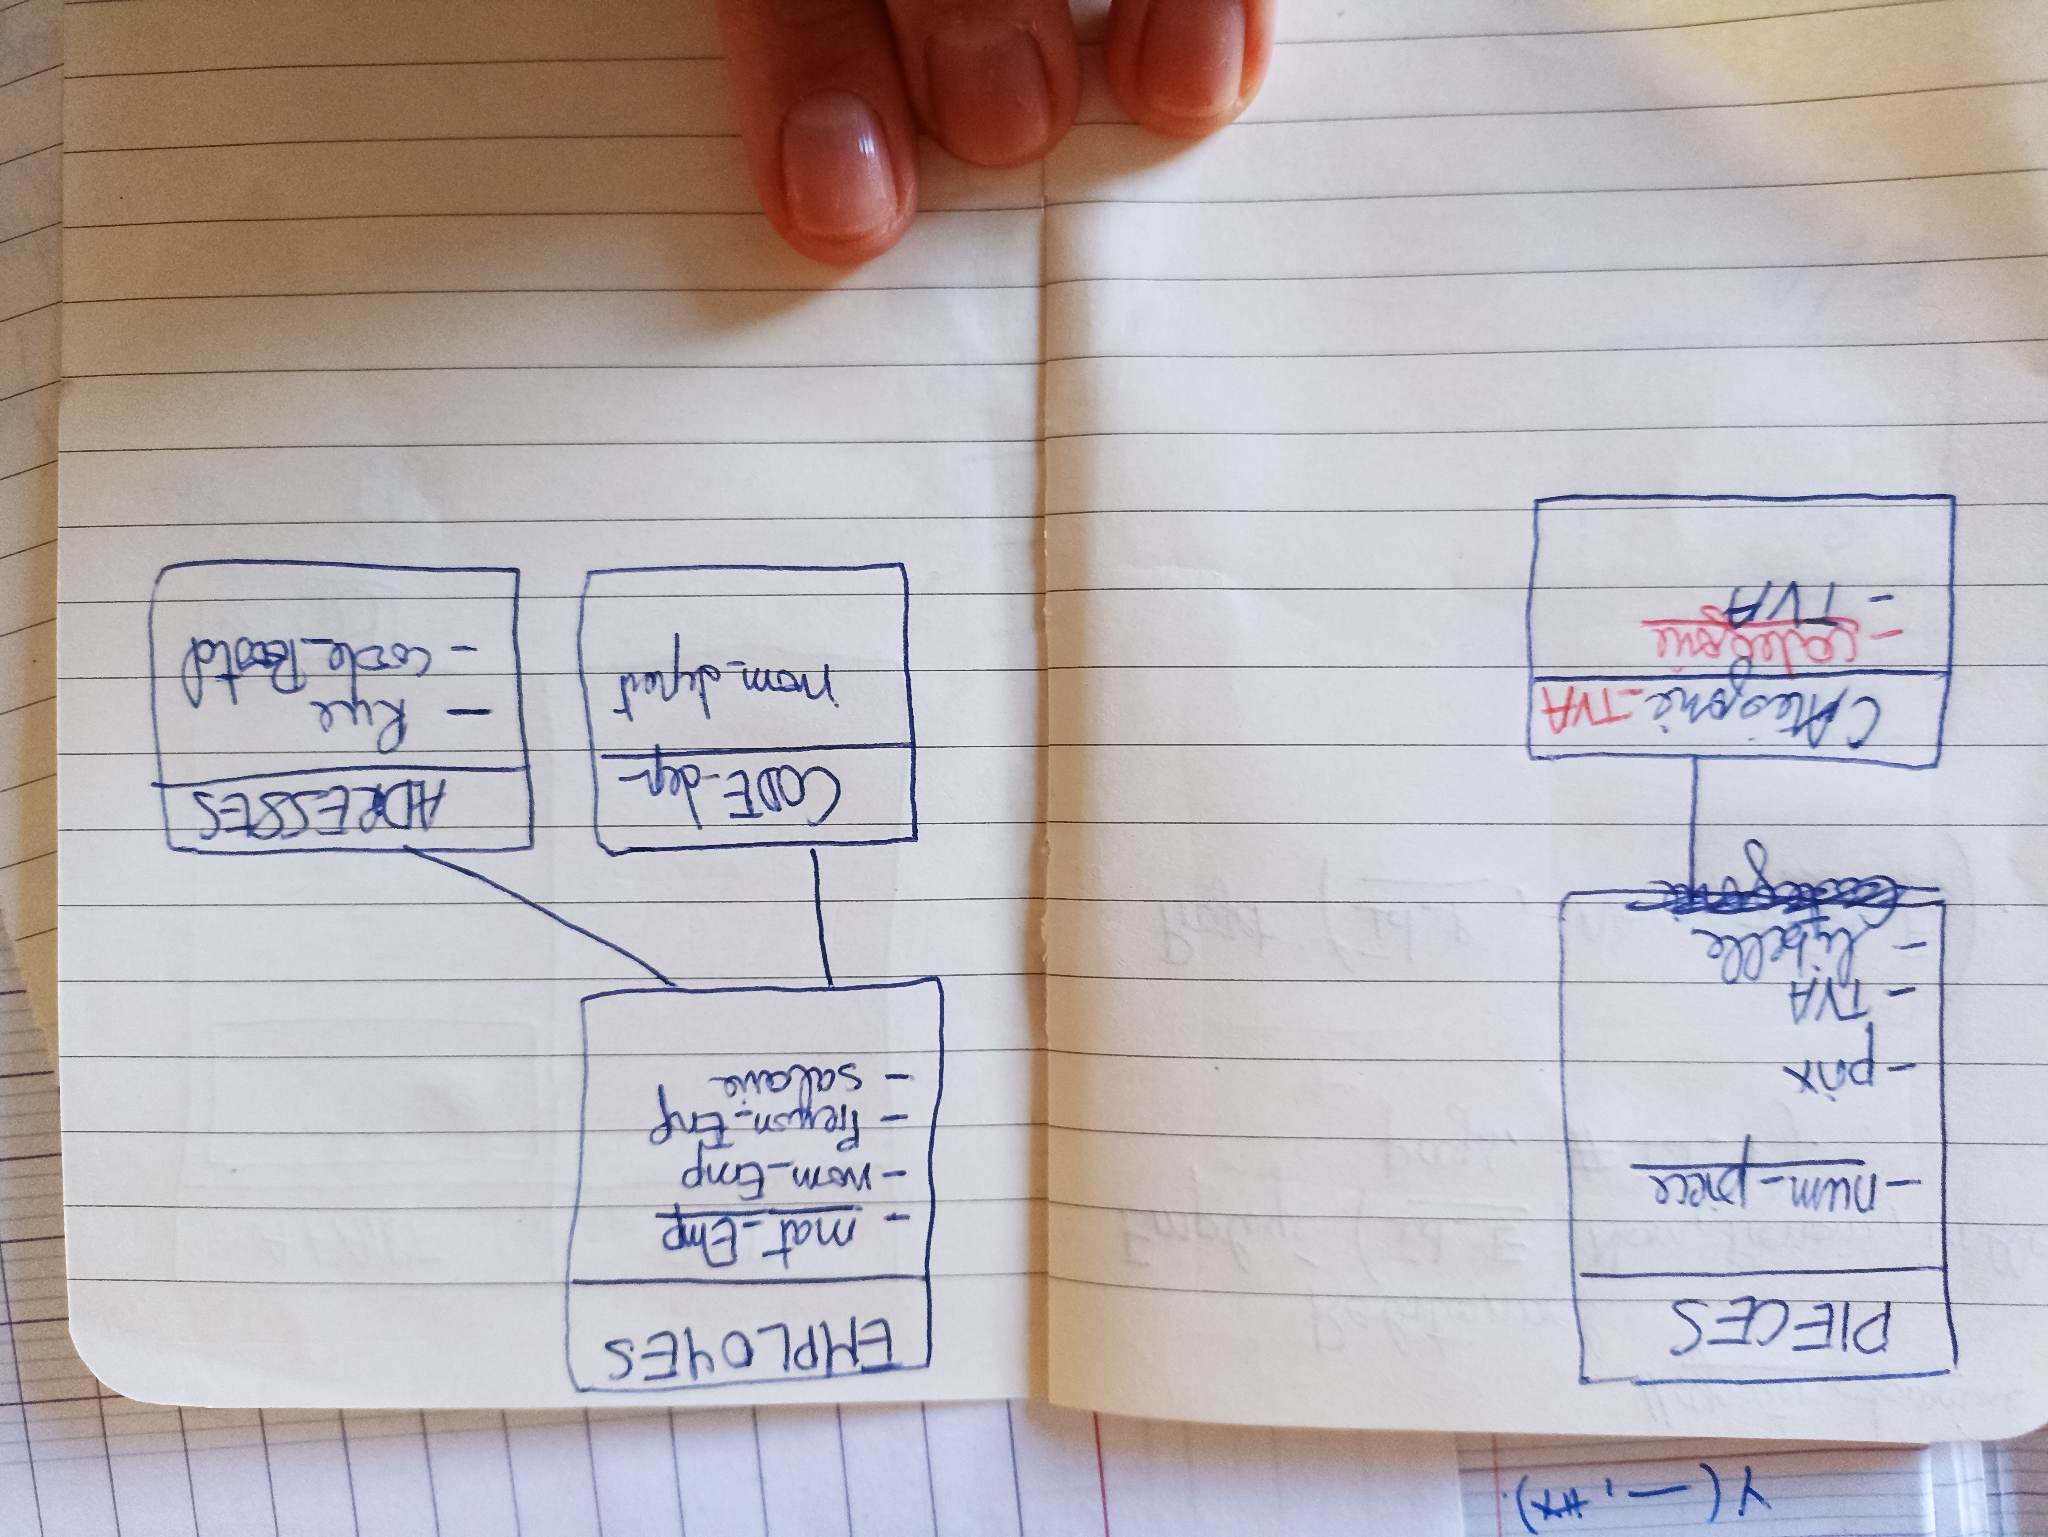 Y(—, #X).
PIECES
- num_piece
- prix
- TVA
- libelle
Categorie
CAtégorie_TVA
- categorie
- TVA
EMPLOYES
- mat_Emp
- nom_Emp
- Prenom_Emp
- salaire
CODE_dep
nom_depart
ADRESSES
- Rue
- code_Postal